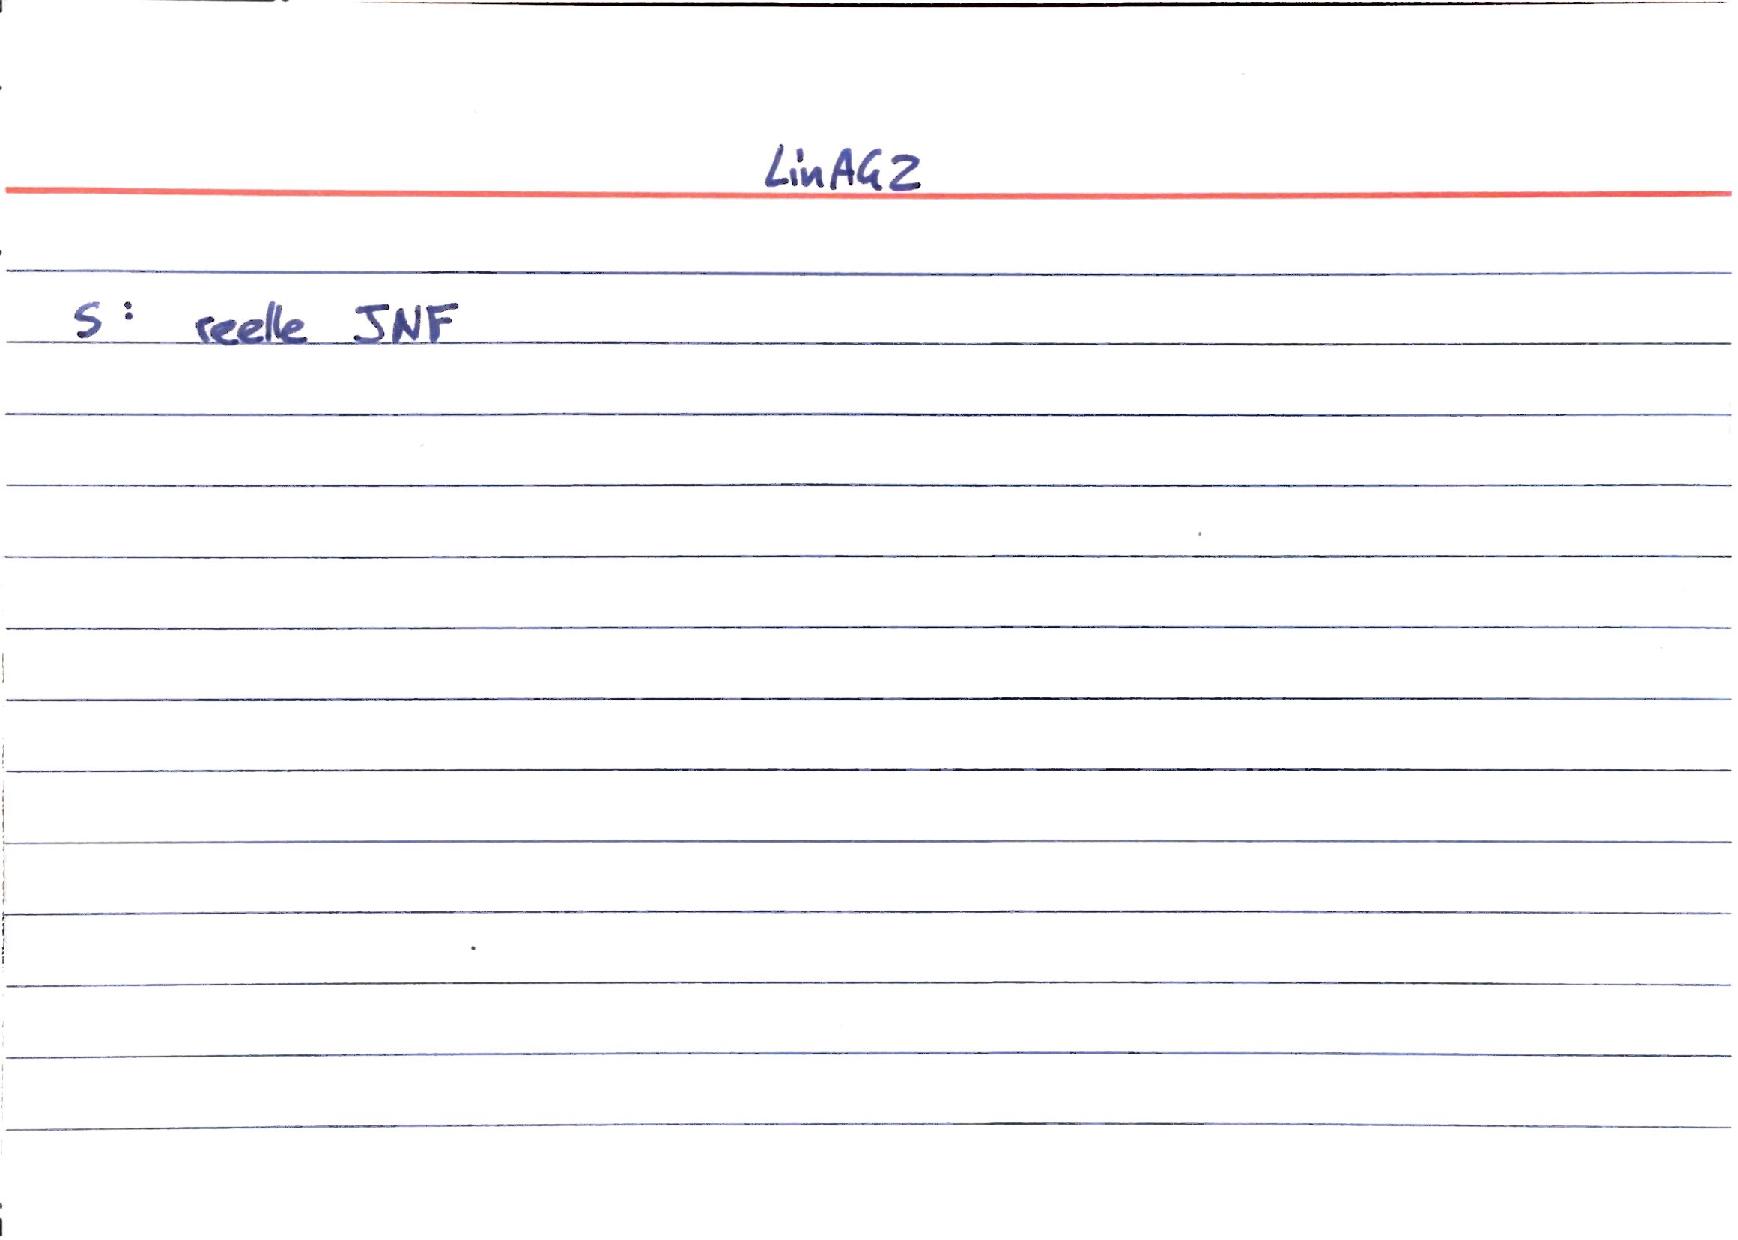 LinAG2
S: reelle JNF